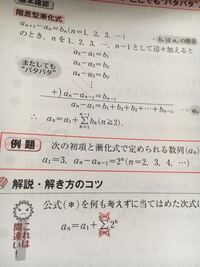 階差型漸化式
a_{n+1}−a_n=b_n(n=1, 2, 3, …)
のとき, nを1, 2, 3, …, n−1として辺々加えると
a_2−a_1=b_1
a_3−a_2=b_2
a_4−a_3=b_3
またしても
“パタパタ”
⋮
+) a_n−a_{n−1}=b_{n−1}
a_n−a_1=b_1+b_2+b_3+…+b_{n−1}
∴ a_n=a_1+\sum_{k=1}^{n−1}b_k(n≧2).
例題 次の初項と漸化式で定められる数列{a_n}
a_1=3, a_n−a_{n−1}=2^n(n=2, 3, 4, …)
解説・解き方のコツ
公式(*)を何も考えずに当てはめた次式に
これは
間違い
a_n=a_1+